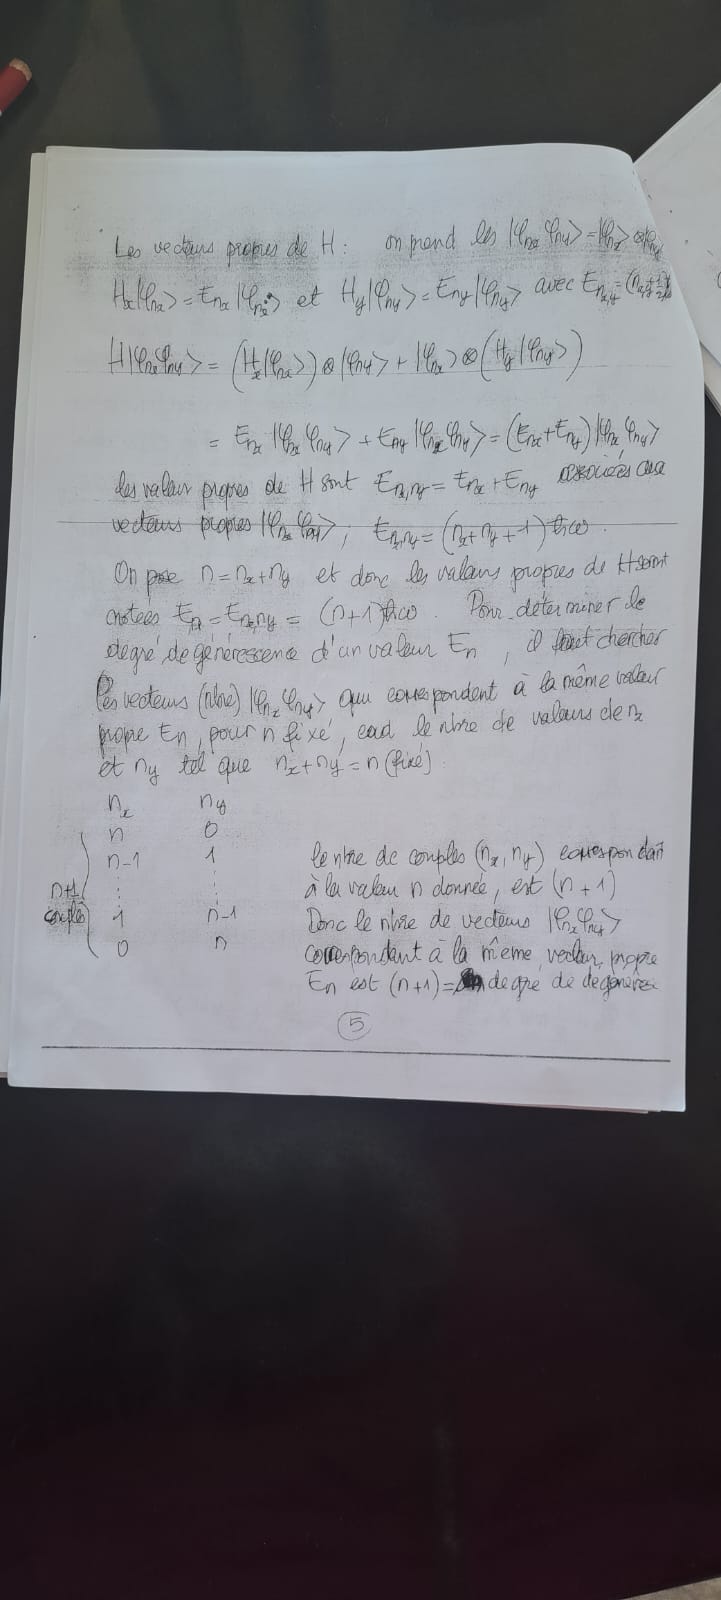 Les vecteurs propres de H : on prend les |φnx φny> = |φnx> ⊗ |φny
Hx|φnx> = Enx|φnx> et Hy|φny> = Eny|φny> avec Enx,y = (nx,y + 1/2)ħω
H|φnx φny> = (Hx|φnx>) ⊗ |φny> + |φnx> ⊗ (Hy|φny>)
= Enx |φnx φny> + Eny |φnx φny> = (Enx + Eny) |φnx φny>
les valeur propres de H sont Enx,ny = Enx + Eny associées aux
vecteurs propres |φnx φny> ; Enx,ny = (nx + ny + 1) ħω.
On pose n = nx + ny et donc les valeurs propres de H sont
notées En = Enx,ny = (n+1)ħω. Pour déterminer le
degré de générescence d'un valeur En, il faut chercher
les vecteurs (nbre) |φnx φny> qui correspondent à la même valeur
propre En, pour n fixé, cad le nbre de valeurs de nx
et ny tel que nx + ny = n (fixé).
nx ny
n 0
n-1 1
⋮ ⋮
1 n-1
0 n
n+1
couples
le nbre de couples (nx, ny) correspondant
à la valeur n donnée, est (n+1)
Donc le nbre de vecteurs |φnx φny>
correspondant à la même valeur propre
En est (n+1) = degré de dégénéresc
5